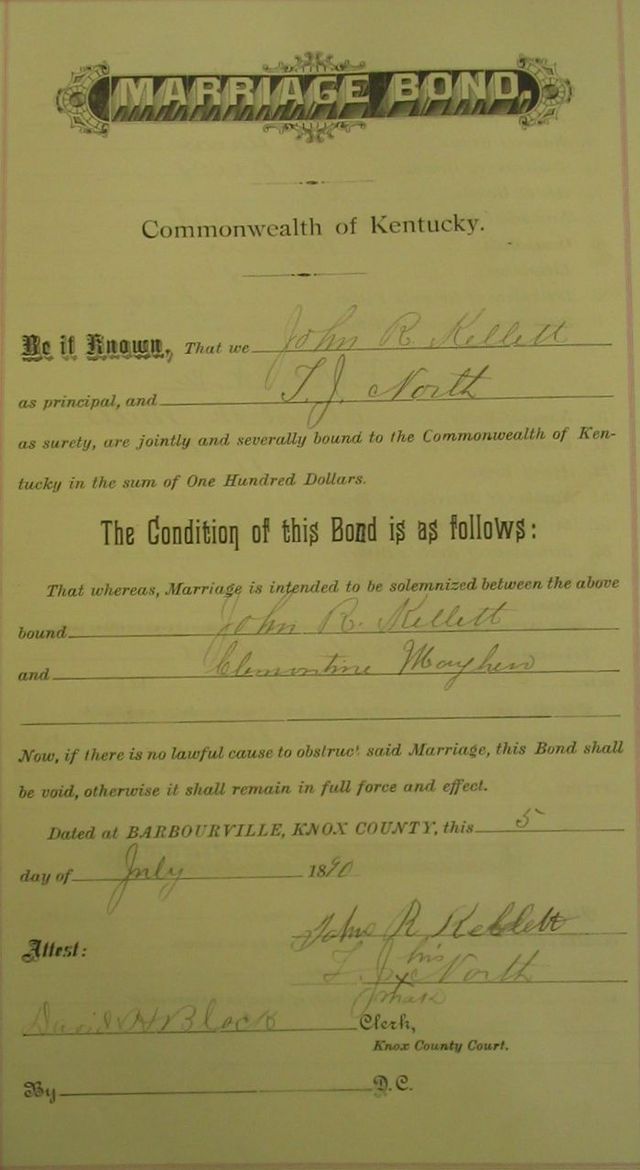 MARRIAGE BOND.
Commonwealth of Kentucky.
Be it Known, That we John R Kellett
as principal, and T. J. North
as surety, are jointly and severally bound to the Commonwealth of Ken-
tucky in the sum of One Hundred Dollars.
The Condition of this Bond is as follows:
That whereas, Marriage is intended to be solemnized between the above
bound John R. Kellett
and Clemontine Mayhew
Now, if there is no lawful cause to obstruct said Marriage, this Bond shall
be void, otherwise it shall remain in full force and effect.
Dated at BARBOURVILLE, KNOX COUNTY, this 5
day of July 1890
John R Kellett
Attest:
his
T. J. x North
mark
David H Black Clerk,
Knox County Court.
By D.C.